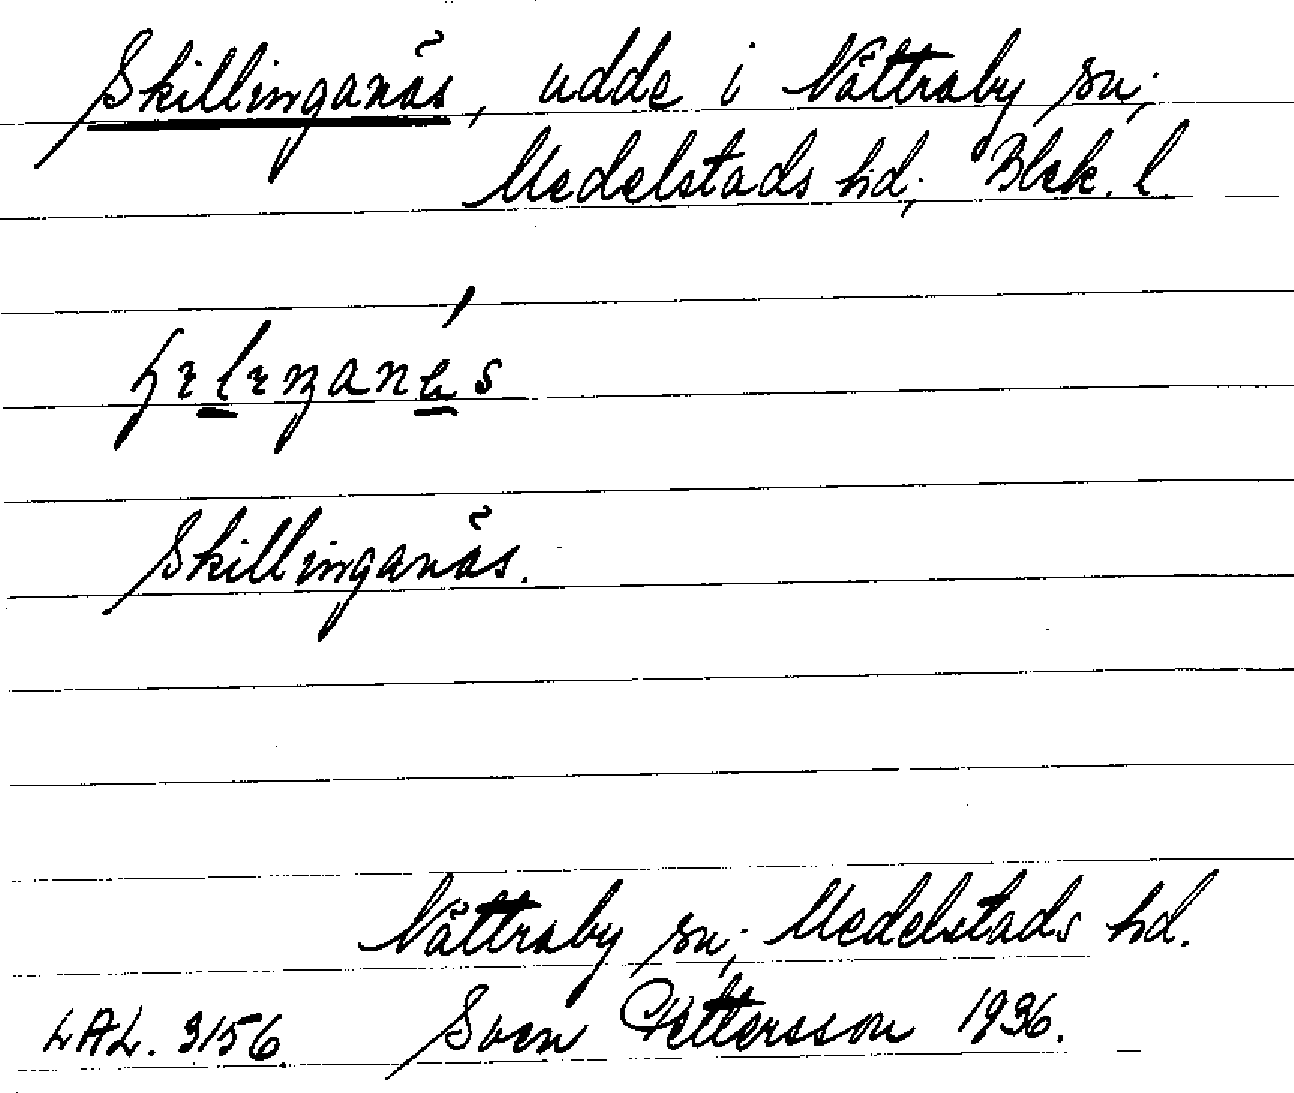 Skillinganäs, udde i Nättraby sn;
Medelstads hd; Blek. l.
Skillinganäs.
Nättraby sn; Medelstads hd.
LAL. 3156. Sven Pettersson 1936.